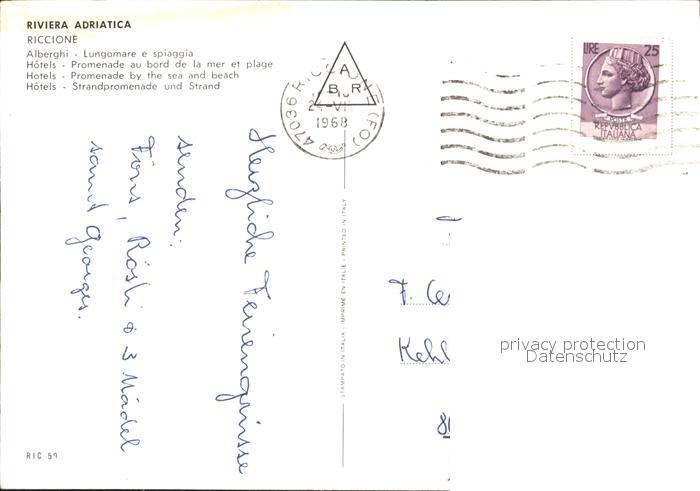 RIVIERA ADRIATICA
RICCIONE
Alberghi - Lungomare e spiaggia
Hôtels - Promenade au bord de la mer et plage
Hotels - Promenade by the sea and beach
Hôtels - Strandpromenade und Strand
47036 RICCIONE (FO)
1968
A
B R
LIRE 25
POSTE
REPVBBLICA
ITALIANA
Herzliche Feriengrüsse
senden:
Föns, Rösli & 3 Mädel
samt Georges.
STAMPATO IN ITALIA - IMPRIMÉ EN ITALIE - PRINTED IN ITALY
F. Ce
Kehl
privacy protection
Datenschutz
RIC 59